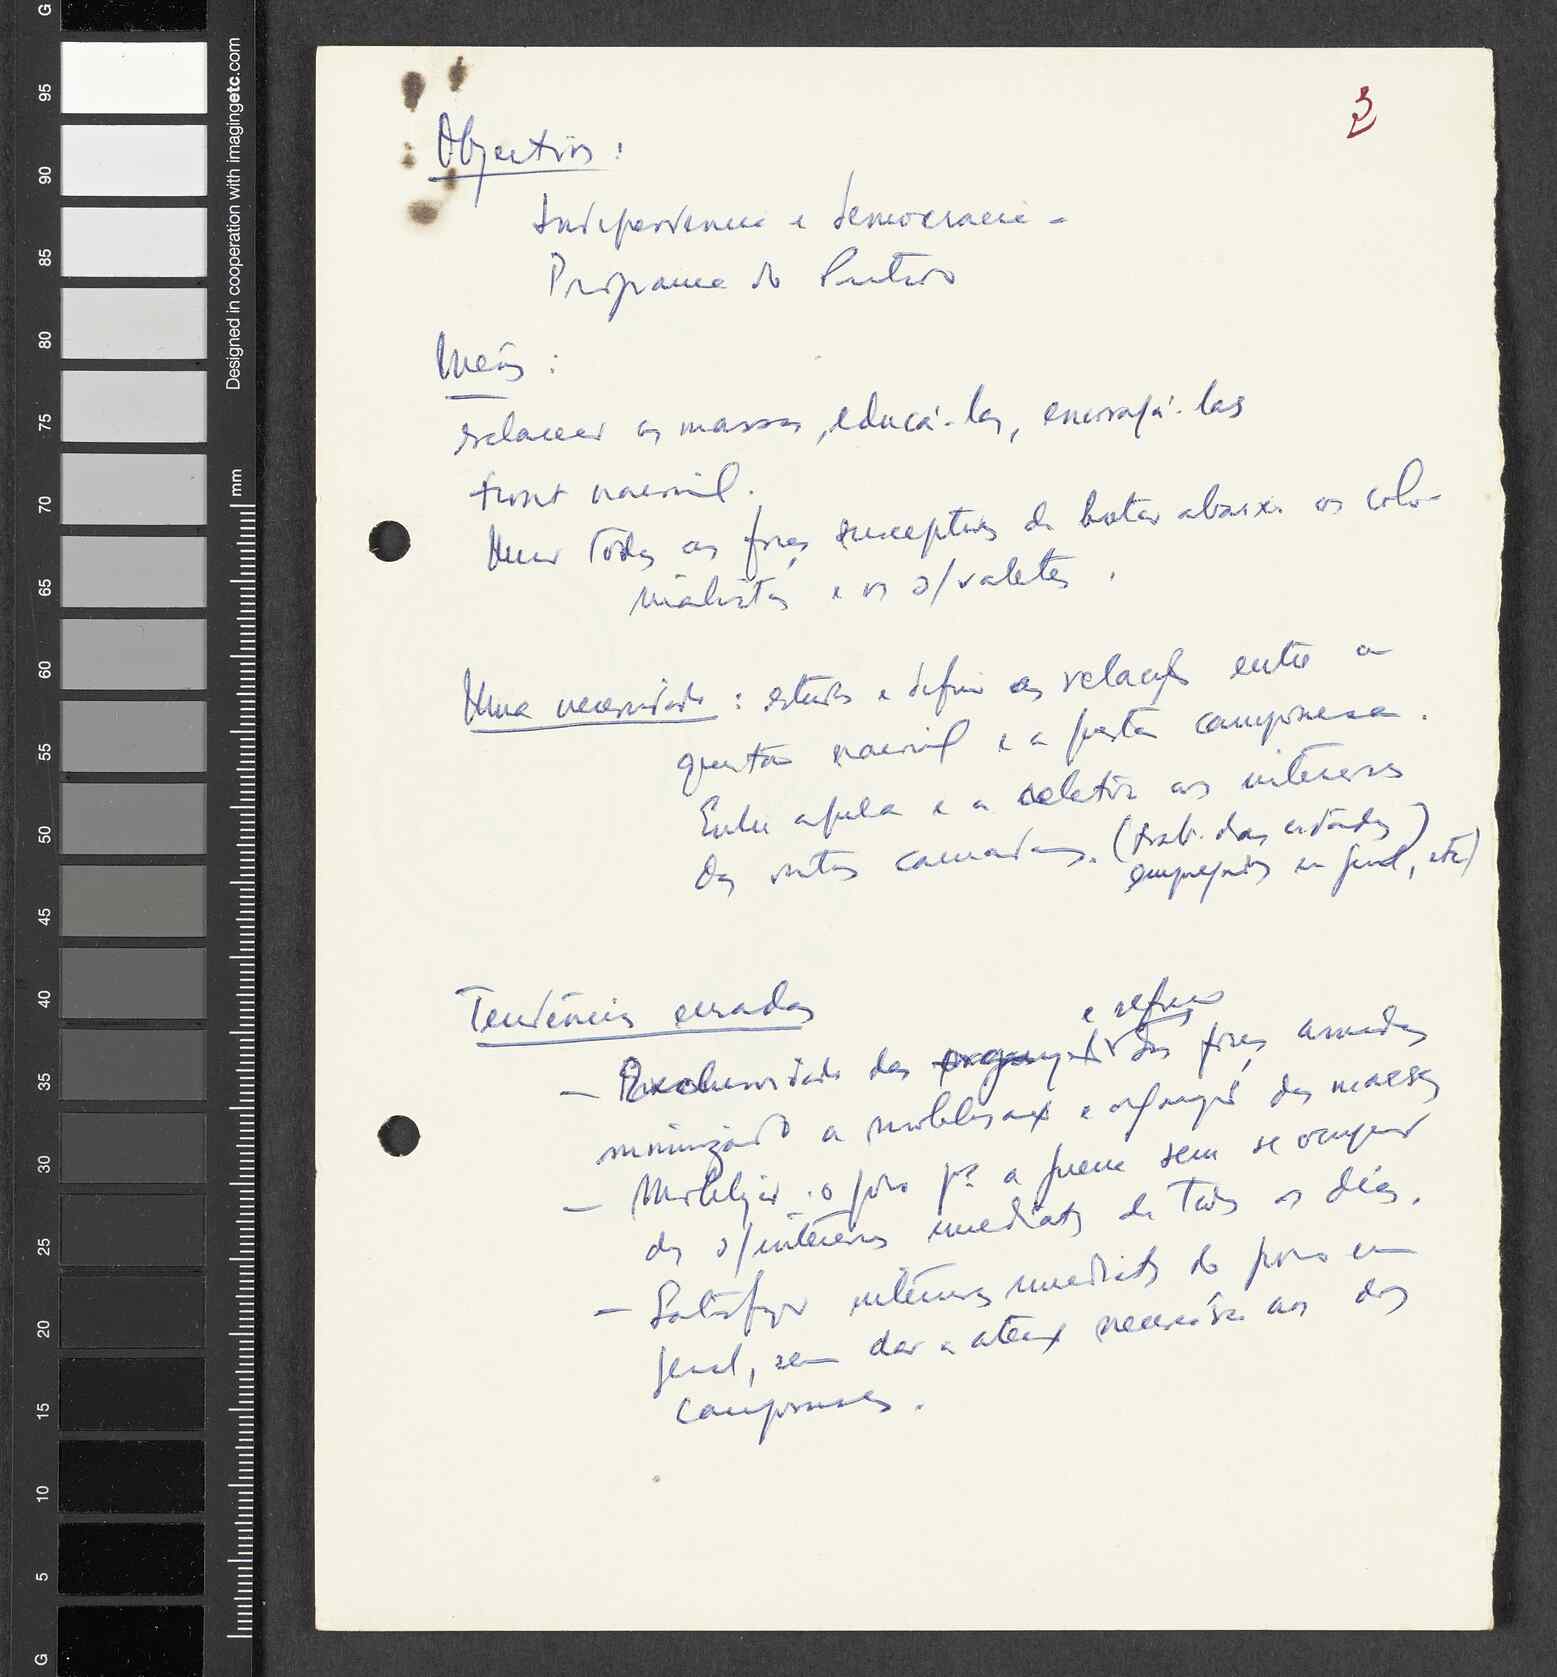 3
Objectivos:
Independência e democracia -
Programa do Partido
Meios:
esclarecer as massas, educá-las, encorajá-las
front nacional.
Unir tôdas as forças susceptíveis de botar abaixo os colo-
nialistas e os s/valetes.
Uma necessidade: estudar e definir as relações entre a
questão nacional e a questão camponesa.
Entre aquela e a relativa aos interesses
das outras camadas. (trab. das cidades
empregados em geral, etc)
Tendências erradas
e refôrço
- Exclusividade das das forças armadas
minimizando a mobilização e organização das massas
- Mobilizar o povo pª a guerra sem se ocupar
dos s/interesses imediatos de todos os dias.
- Satisfazer interesses imediatos do povo em
geral, sem dar a atenção necessária aos dos
camponeses.
G
95
90
85
80
75
70
65
60
55
50
45
40
35
30
25
20
15
10
5
G
Designed in cooperation with imagingetc.com
mm